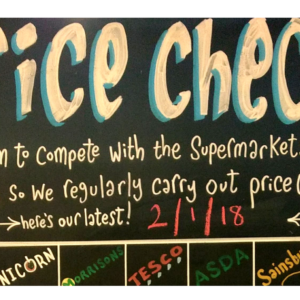 rice Chec
m to compete with the Supermarket
so we regularly carry out price
→here's our latest! 2/1/18 ←
NICORN MORRISONS TESCO ASDA Sainsb